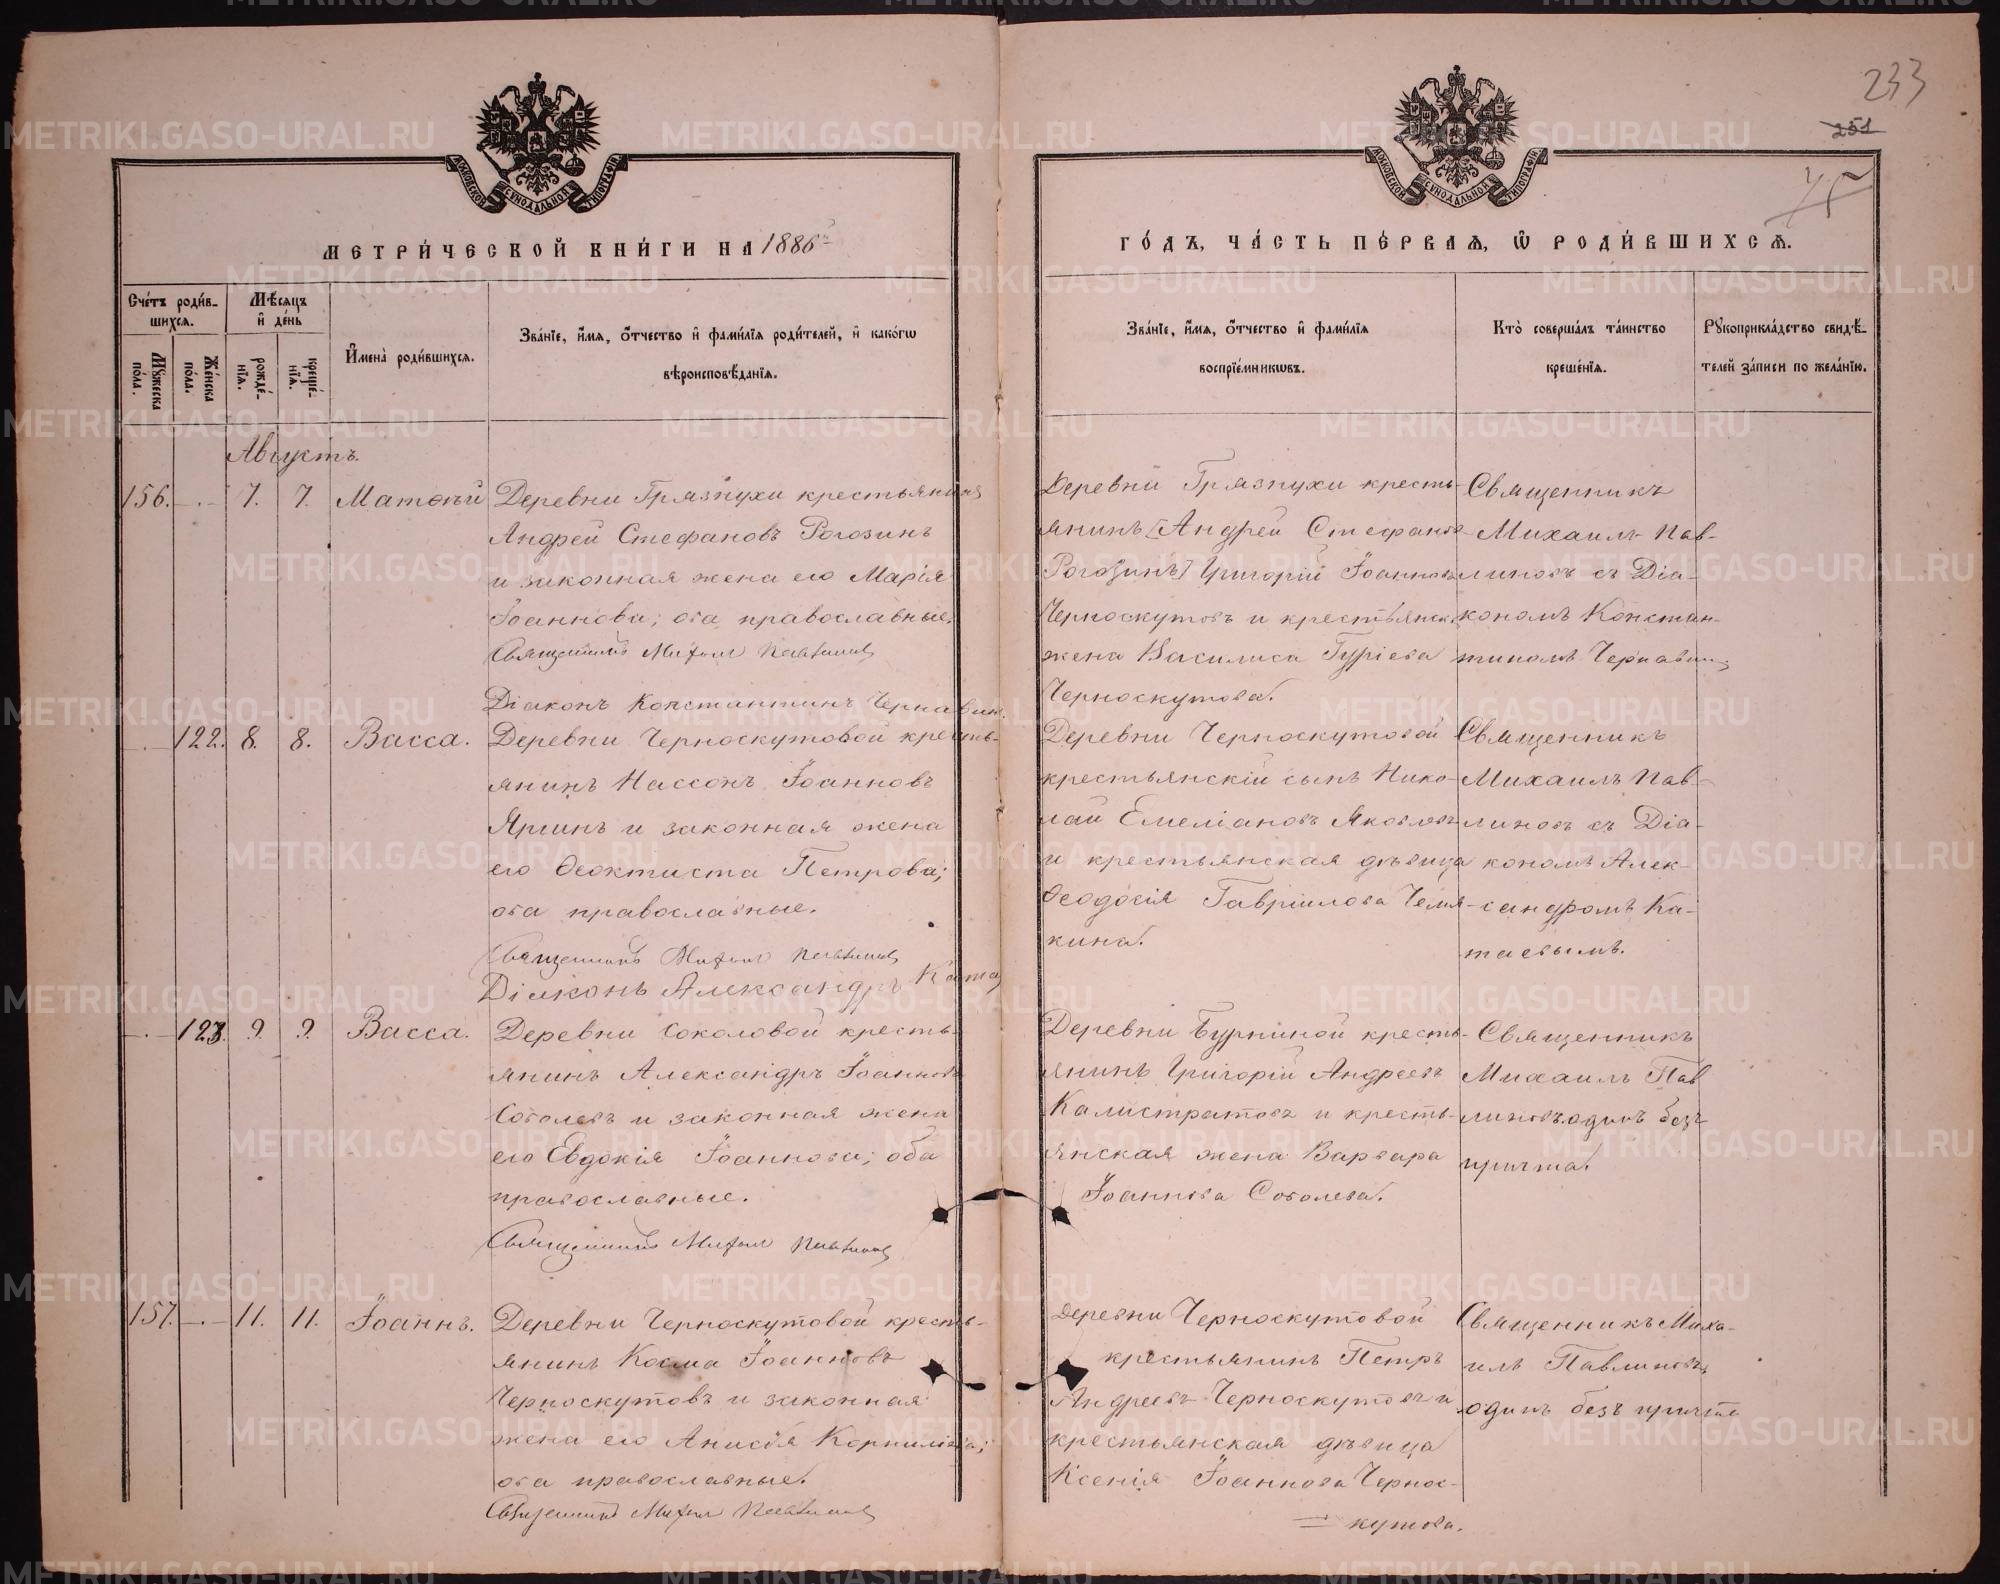 233
251
МОСКОВСКОЙ СѴНОДАЛЬНОЙ ТИПОГРАФІИ
МОСКОВСКОЙ СѴНОДАЛЬНОЙ ТИПОГРАФІИ
МЕТРИ́ЧЕСКОЙ КНИ́ГИ НА 1886й
ГО́ДЪ, ЧА́СТЬ ПЕ́РВАѦ, Ѽ РОДИ́ВШИХСѦ.
Сче́тъ роди́в-
шихсѧ.
Мѣ́сѧцъ
и҆ де́нь
Мꙋ́жеска
по́ла.
Же́нска
по́ла.
рожде́-
нїѧ.
креще́-
нїѧ.
И҆мена̀ роди́вшихсѧ.
Зва́нїе, и҆́мѧ, ѻ҆́тчество и҆ фами́лїѧ роди́телей, и҆ како́гѡ
вѣроисповѣ́данїѧ.
Зва́нїе, и҆́мѧ, ѻ҆́тчество и҆ фами́лїѧ
воспрїе́мникѡвъ.
Кто̀ соверша́лъ та́инство
креще́нїѧ.
Рꙋкоприкла́дство свидѣ́-
телей за́писи по жела́нїю.
Августъ.
156. — 7. 7. Матѳѣй
Деревни Грязнухи крестьянинъ
Андрей Стефановъ Рогозинъ
и законная жена его Марія
Іоаннова; оба православные.
Священникъ Михаил Павлинов
Діаконъ Константинъ Чернавин.
Деревни Грязнухи кресть-
янинъ [Андрей Стефановъ
Рогозинъ] Григорій Іоанновъ
Черноскутовъ и крестьянск.
жена Василиса Гуріева
Черноскутова.
Священникъ
Михаилъ Пав-
линовъ съ Діа-
кономъ Констан-
тиномъ Чернавин.
— 122. 8. 8. Васса.
Деревни Черноскутовой кресть-
янинъ Нассонъ Іоанновъ
Яркинъ и законная жена
его Ѳеоктиста Петрова;
оба православные.
Священникъ Михаил Павлинов
Діаконъ Александръ Ката
Деревни Черноскутовой
крестьянскій сынъ Нико-
лай Емеліановъ Яковлевъ
и крестьянская дѣвица
Ѳеодосія Гавріилова Чемя-
кина.
Священникъ
Михаилъ Пав-
линовъ съ Діа-
кономъ Алек-
сандромъ Ка-
таевымъ.
— 123. 9. 9. Васса.
Деревни Соколовой кресть-
янинъ Александръ Іоанновъ
Соболевъ и законная жена
его Евдокія Іоаннова; оба
православные.
Священникъ Михаил Павлинов
Деревни Бурниной кресть-
янинъ Григорій Андреевъ
Калистратовъ и кресть-
янская жена Варвара
Іоаннова Соболева.
Священникъ
Михаилъ Пав
линовъ одинъ безъ
причта.
157. — 11. 11. Іоаннъ.
Деревни Черноскутовой кресть-
янинъ Косма Іоанновъ
Черноскутовъ и законная
жена его Анисія Корниліева;
оба православные.
Священникъ Михаил Павлинов
Деревни Черноскутовой
крестьянинъ Петръ
Андреевъ Черноскутовъ и
крестьянская дѣвица
Ксенія Іоаннова Чернос-
= кутова.
Священникъ Миха-
илъ Павлиновъ,
одинъ безъ причта
METRIKI.GASO-URAL.RU